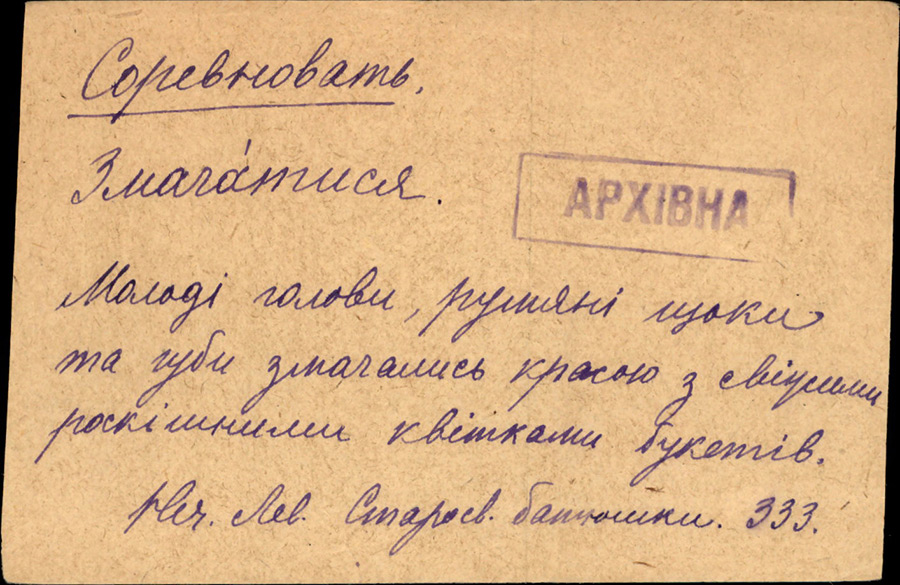 Соревновать.
Змача́тися.
АРХІВНА
Молоді голови, румяні щоки
та губи змачались красою з свіжими
роскішними квітками букетів.
Неч. Лев. Старосв. батюшки. 333.